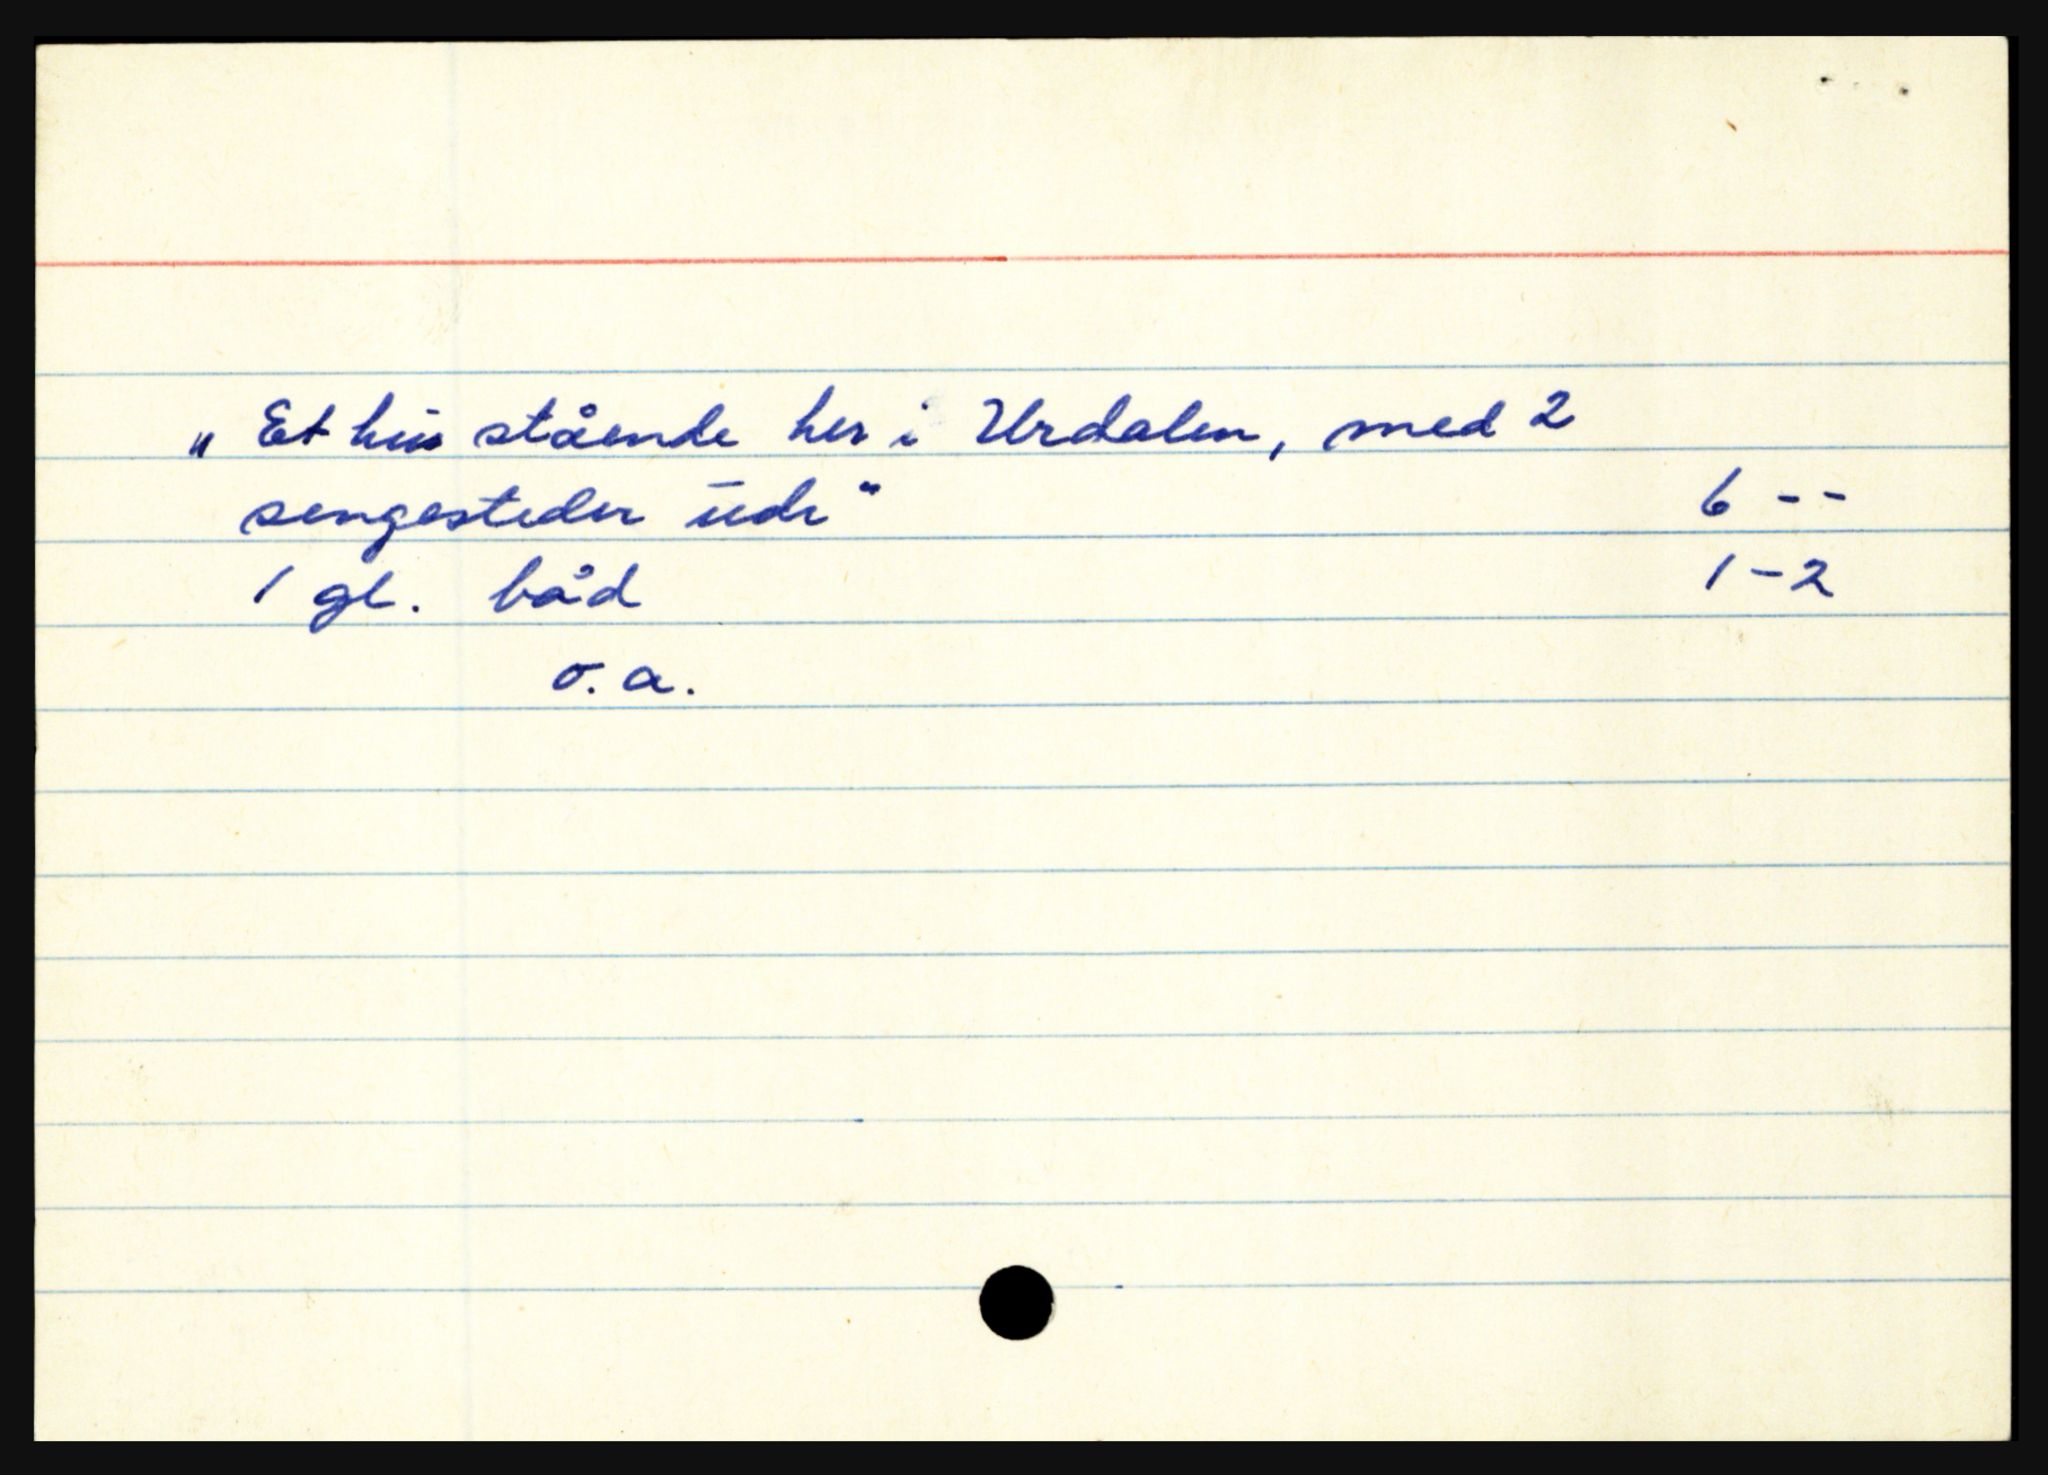 „Et hus stående her i Urdalen, med 2
sengesteder udi“ 6 - -
1 gl. båd 1 - 2
o. a.